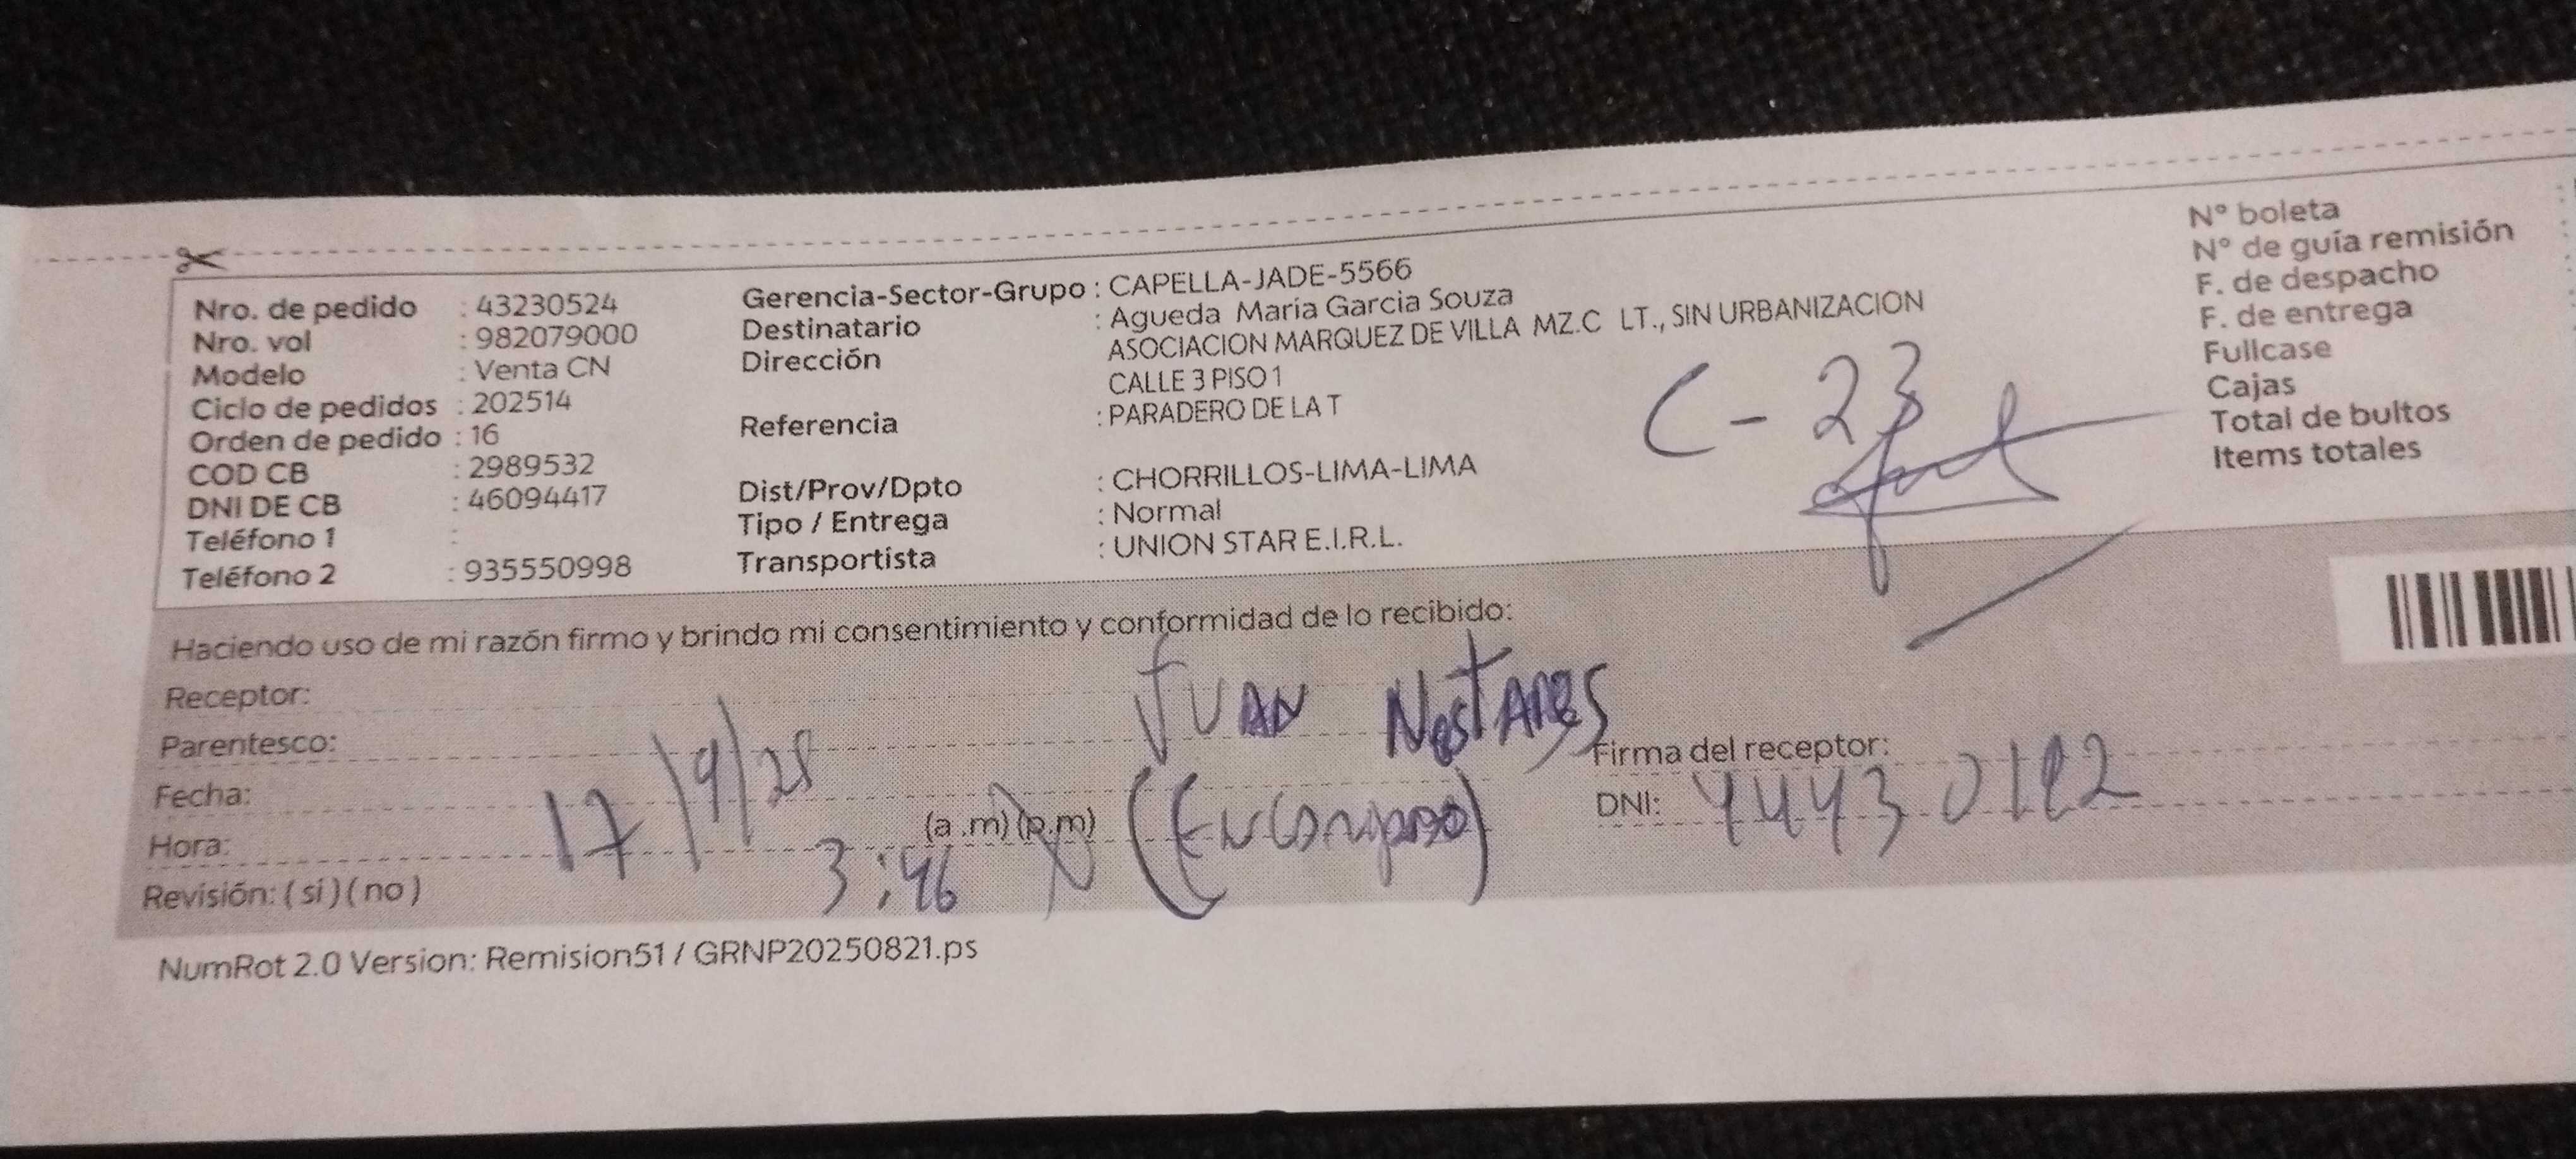 Nro. de pedido : 43230524
Nro. vol : 982079000
Modelo : Venta CN
Ciclo de pedidos : 202514
Orden de pedido : 16
COD CB : 2989532
DNI DE CB : 46094417
Teléfono 1 :
Teléfono 2 : 935550998
Gerencia-Sector-Grupo : CAPELLA-JADE-5566
Destinatario : Agueda María Garcia Souza
Dirección ASOCIACION MARQUEZ DE VILLA MZ.C LT., SIN URBANIZACION
CALLE 3 PISO 1
Referencia : PARADERO DE LA T
Dist/Prov/Dpto : CHORRILLOS-LIMA-LIMA
Tipo / Entrega : Normal
Transportista : UNION STAR E.I.R.L.
C-23
N° boleta
N° de guía remisión
F. de despacho
F. de entrega
Fullcase
Cajas
Total de bultos
Items totales
Haciendo uso de mi razón firmo y brindo mi consentimiento y conformidad de lo recibido:
Receptor: JUAN NestARES
Parentesco:
Firma del receptor:
Fecha: 17/9/25
DNI: 4443
Hora: 3:46 (a.m) (p.m)
Revisión: ( si ) ( no )
NumRot 2.0 Version: Remision51 / GRNP20250821.ps